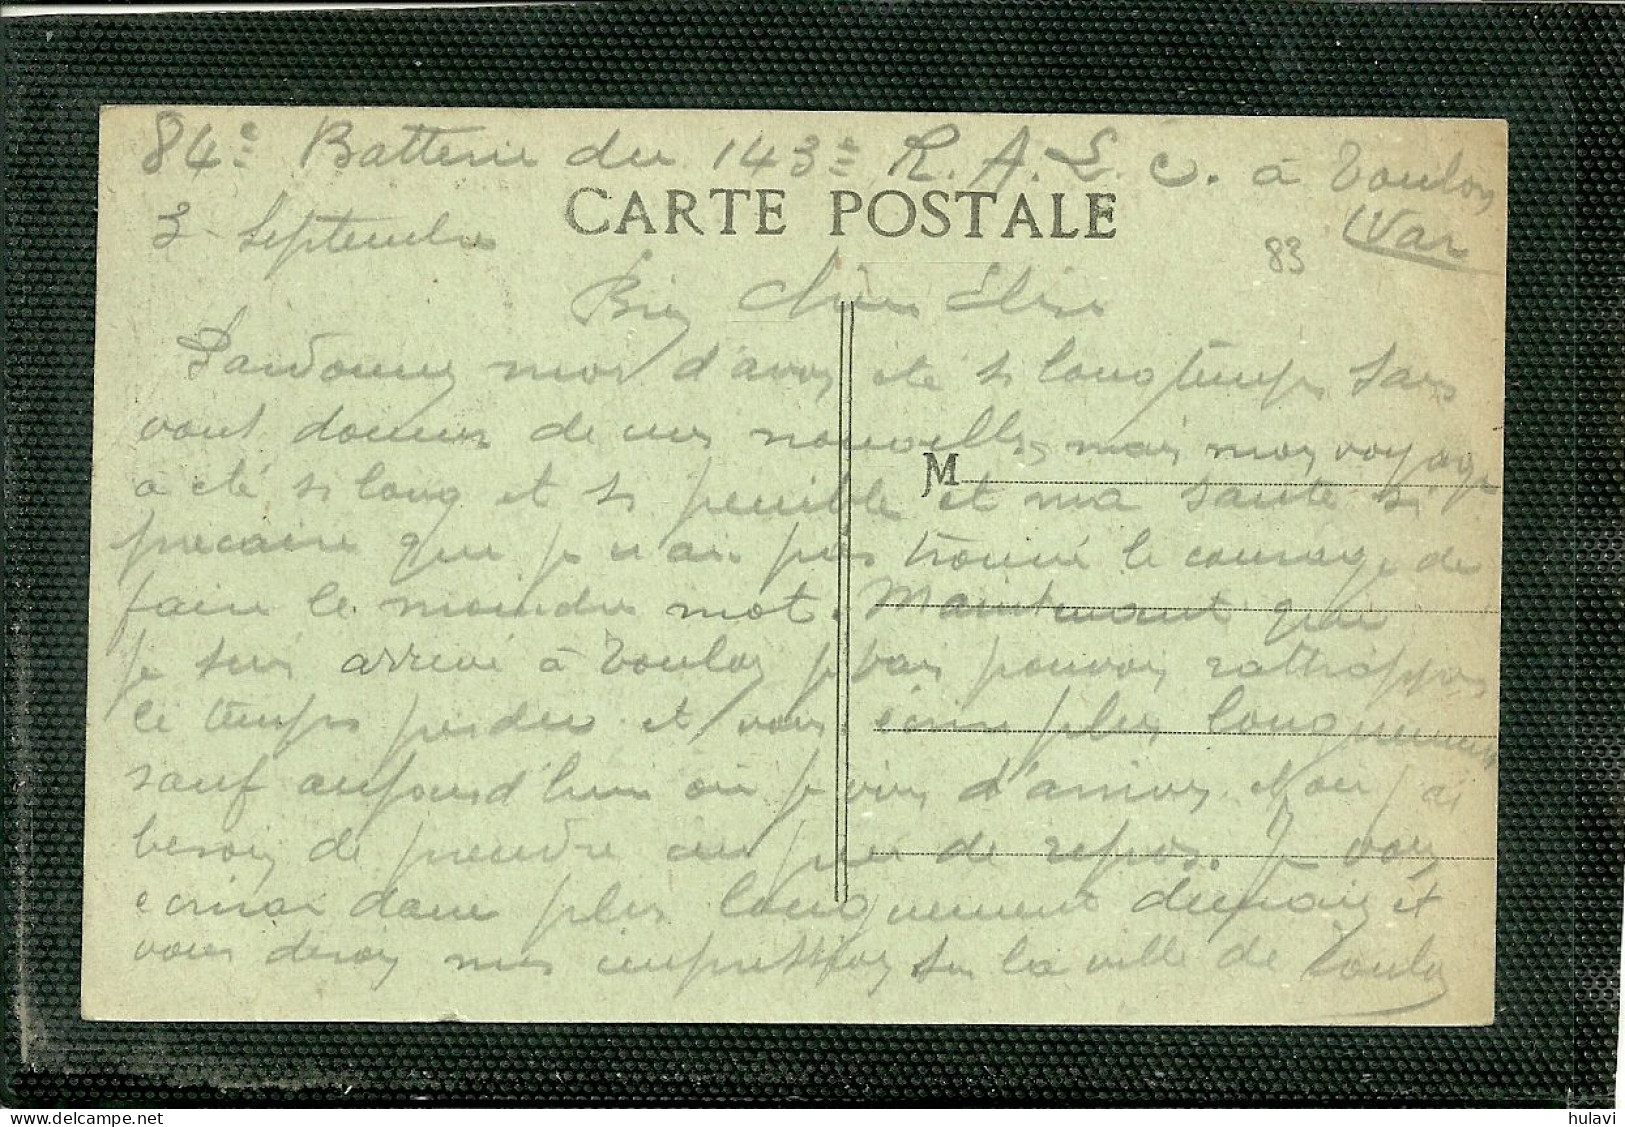 84e Batterie du 143e R.A.L.C. à Toulon
(Var
3 Septembre
CARTE POSTALE
83
Bien chère Elise
Pardonnez moi d'avoir été si longtemps sans
vous donner de mes nouvelles, mais mon voyage
M
a été si long et si penible et ma santé si
precaire que je n'ai pas trouvé le courage de
faire le moindre mot. Maintenant que
je suis arrivé à Toulon je vais pouvoir rattrapper
le temps perdu et vous écrire plus longuement
sauf aujourd'hui où je viens d'arriver et où j'ai
besoin de prendre un peu de repos. Je vous
écrirai donc plus longuement demain et
vous dirai mes impressions sur la ville de Toulon
hulavi